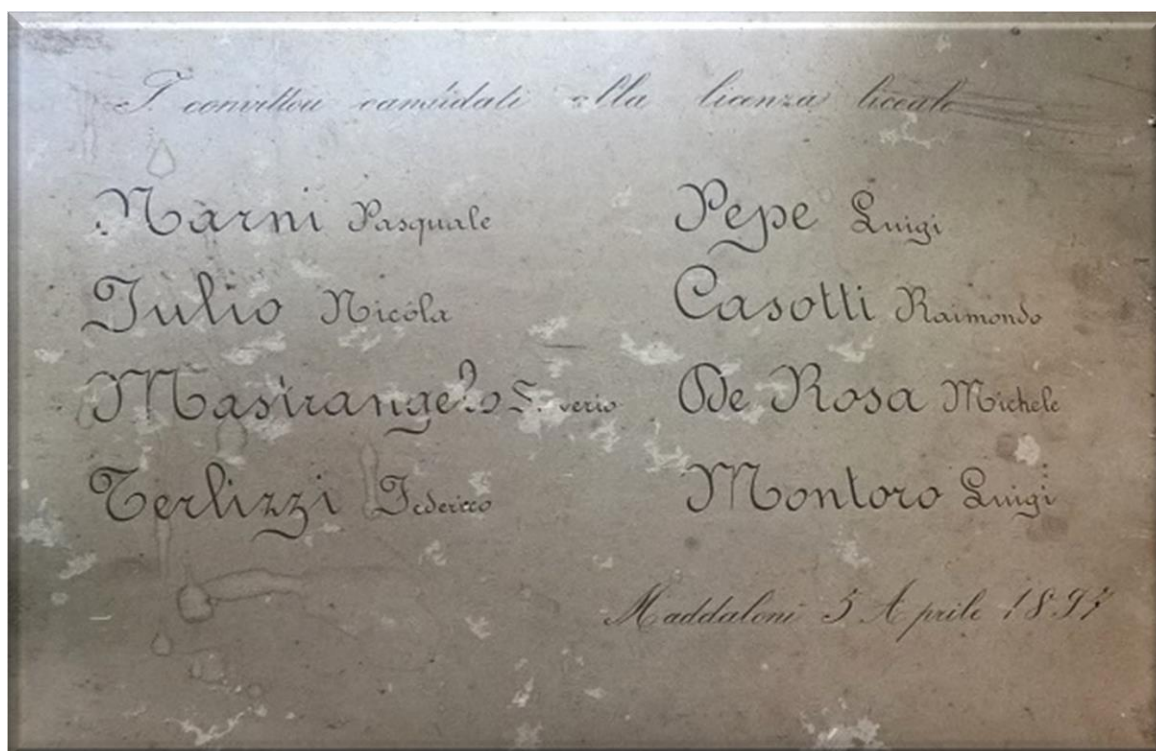 I convittori candidati alla licenza liceale
Marni Pasquale
Julio Nicola
Mastrangelo
Terlizzi Federico
Pepe Luigi
Casotti Raimondo
De Rosa Michele
Montoro Luigi
Maddaloni 5 Aprile 1897